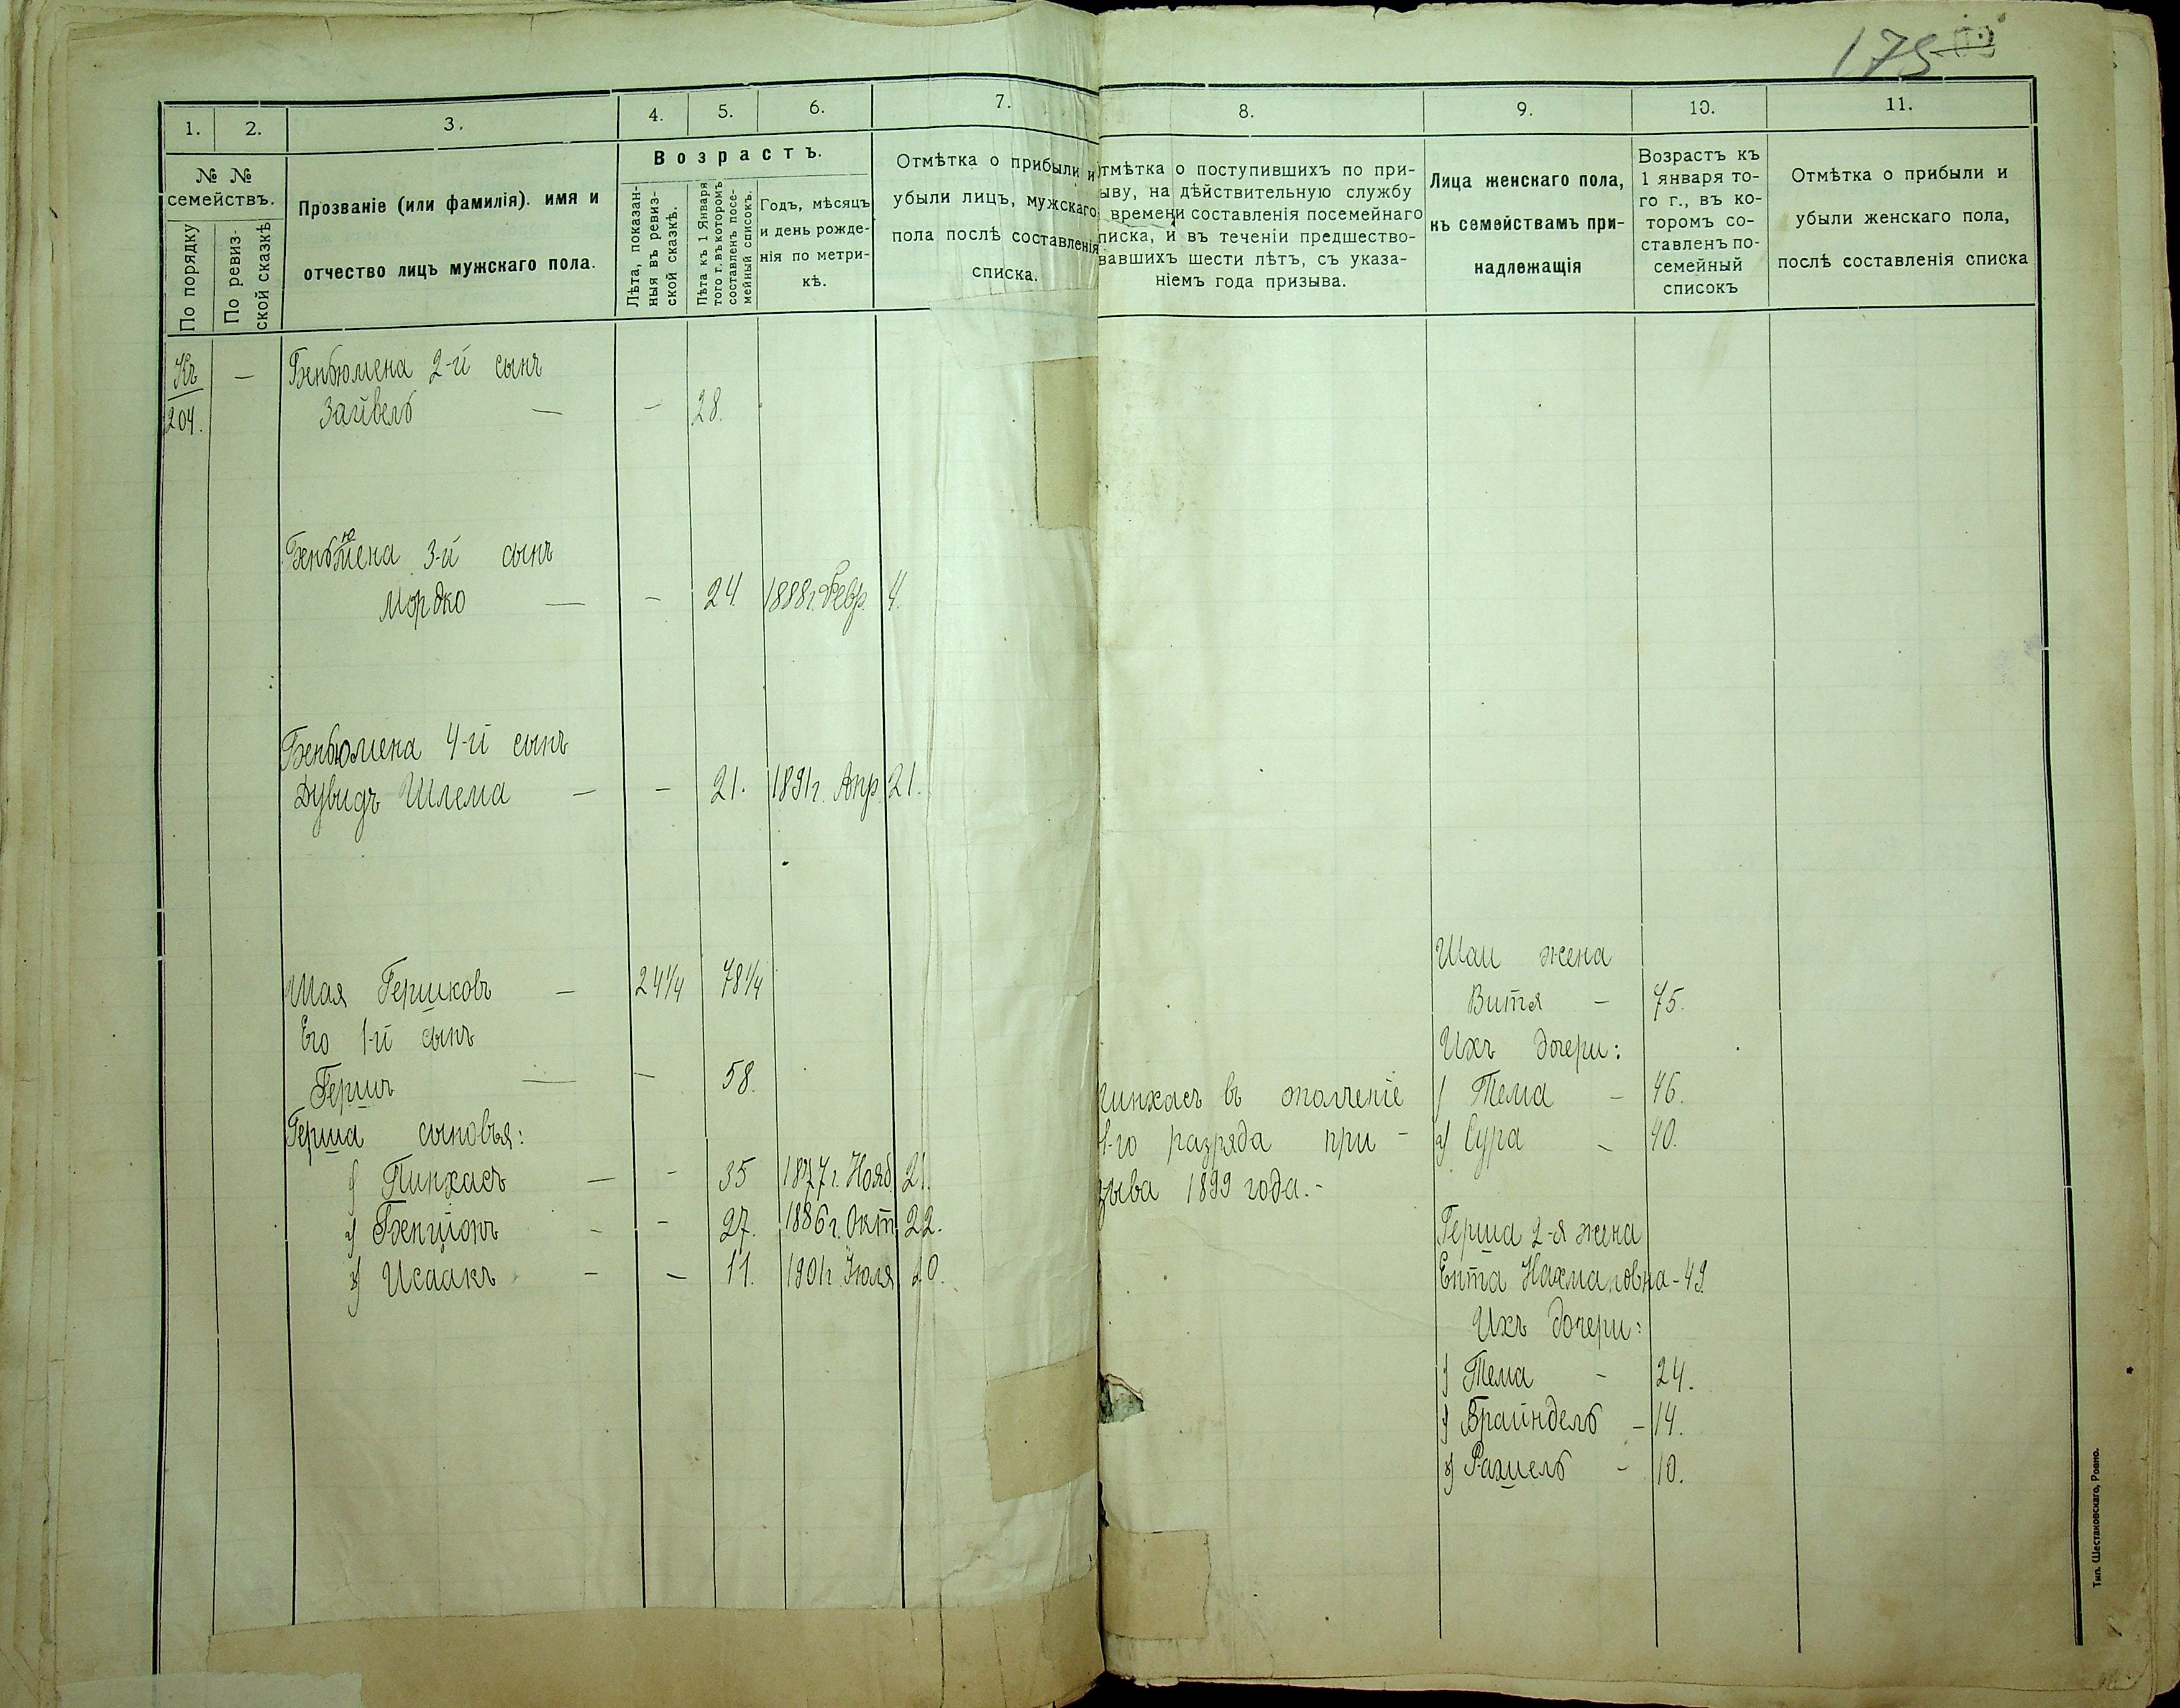 175
1. 2. 3. 4. 5. 6. 7.
№ № семействъ.
По порядку
По ревиз-
ской сказкѣ
Прозваніе (или фамилія). имя и
отчество лицъ мужскаго пола.
Возрастъ.
Лѣта, показан-
ныя въ ревиз-
ской сказкѣ.
Лѣта къ 1 Января
того г. въ которомъ
составленъ посе-
мейный списокъ.
Годъ, мѣсяцъ
и день рожде-
нія по метри-
кѣ.
Отмѣтка о прибыли и
убыли лицъ, мужскаго
пола послѣ составленія
списка.
Къ — Беньюмена 2-й сынъ
204. Зайвель — — 28.
Беньюмена 3-й сынъ
Мордко — — 24. 1888 г. Февр. 4.
Беньюмена 4-й сынъ
Дувидъ Шлема — — 21. 1891 г. Апр. 21.
Шая Гершковъ — 24¼ 78¼
Его 1-й сынъ
Гершъ — — 58.
Герша сыновья:
1) Пинхасъ — — 35 1877 г. Нояб. 21.
2) Бенціонъ — — 27. 1886 г. Окт. 22.
3) Исаакъ — — 11. 1901 г. Іюля 20.
8. 9. 10. 11.
тмѣтка о поступившихъ по при-
ыву, на дѣйствительную службу
времени составленія посемейнаго
писка, и въ теченіи предшество-
вавшихъ шести лѣтъ, съ указа-
ніемъ года призыва.
Лица женскаго пола,
къ семействамъ при-
надлежащія
Возрастъ къ
1 января то-
го г., въ ко-
торомъ со-
ставленъ по-
семейный
списокъ
Отмѣтка о прибыли и
убыли женскаго пола,
послѣ составленія списка
Шаи жена
Витя — 75.
Ихъ дочери:
1) Тема — 46.
2) Сура — 40.
Пинхасъ въ ополченіе
1-го разряда при-
зыва 1899 года.-
Герша 2-я жена
Ента Нахмановна - 49.
Ихъ дочери:
1) Тема - 24.
2) Брайндель - 14.
3) Рахиель - 10.
Тип. Шестаковскаго, Ровно.